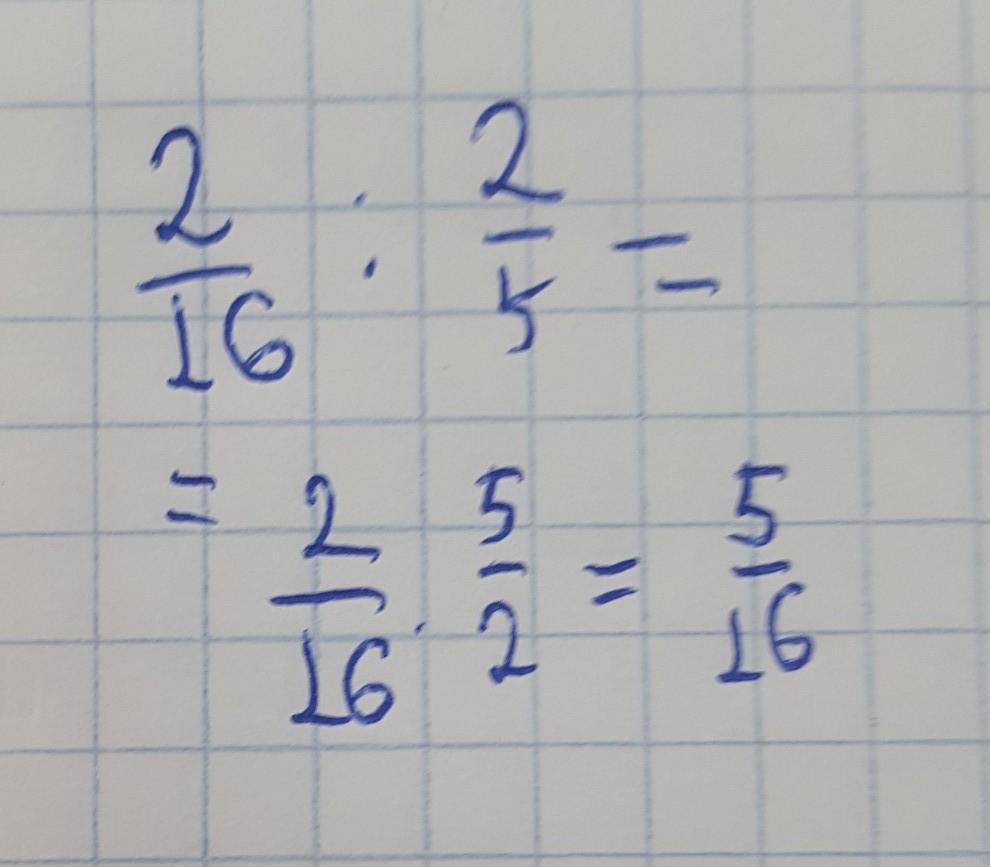 2/16 : 2/5 =
= 2/16 · 5/2 = 5/16